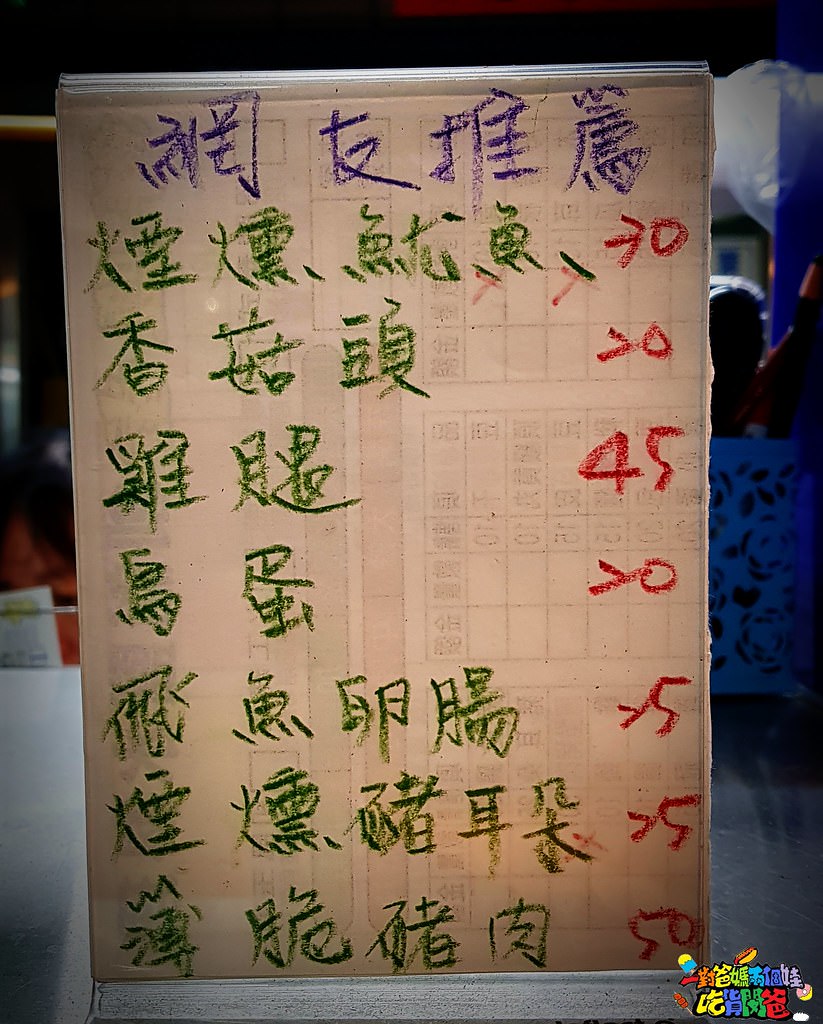 網友推薦
煙燻、魷魚、 20
香菇頭 20
雞腿 45
鳥蛋 20
飛魚卵腸 25
煙燻豬耳朵 25
簿脆豬肉 50
一對爸媽兩個娃
吃貨闆爸